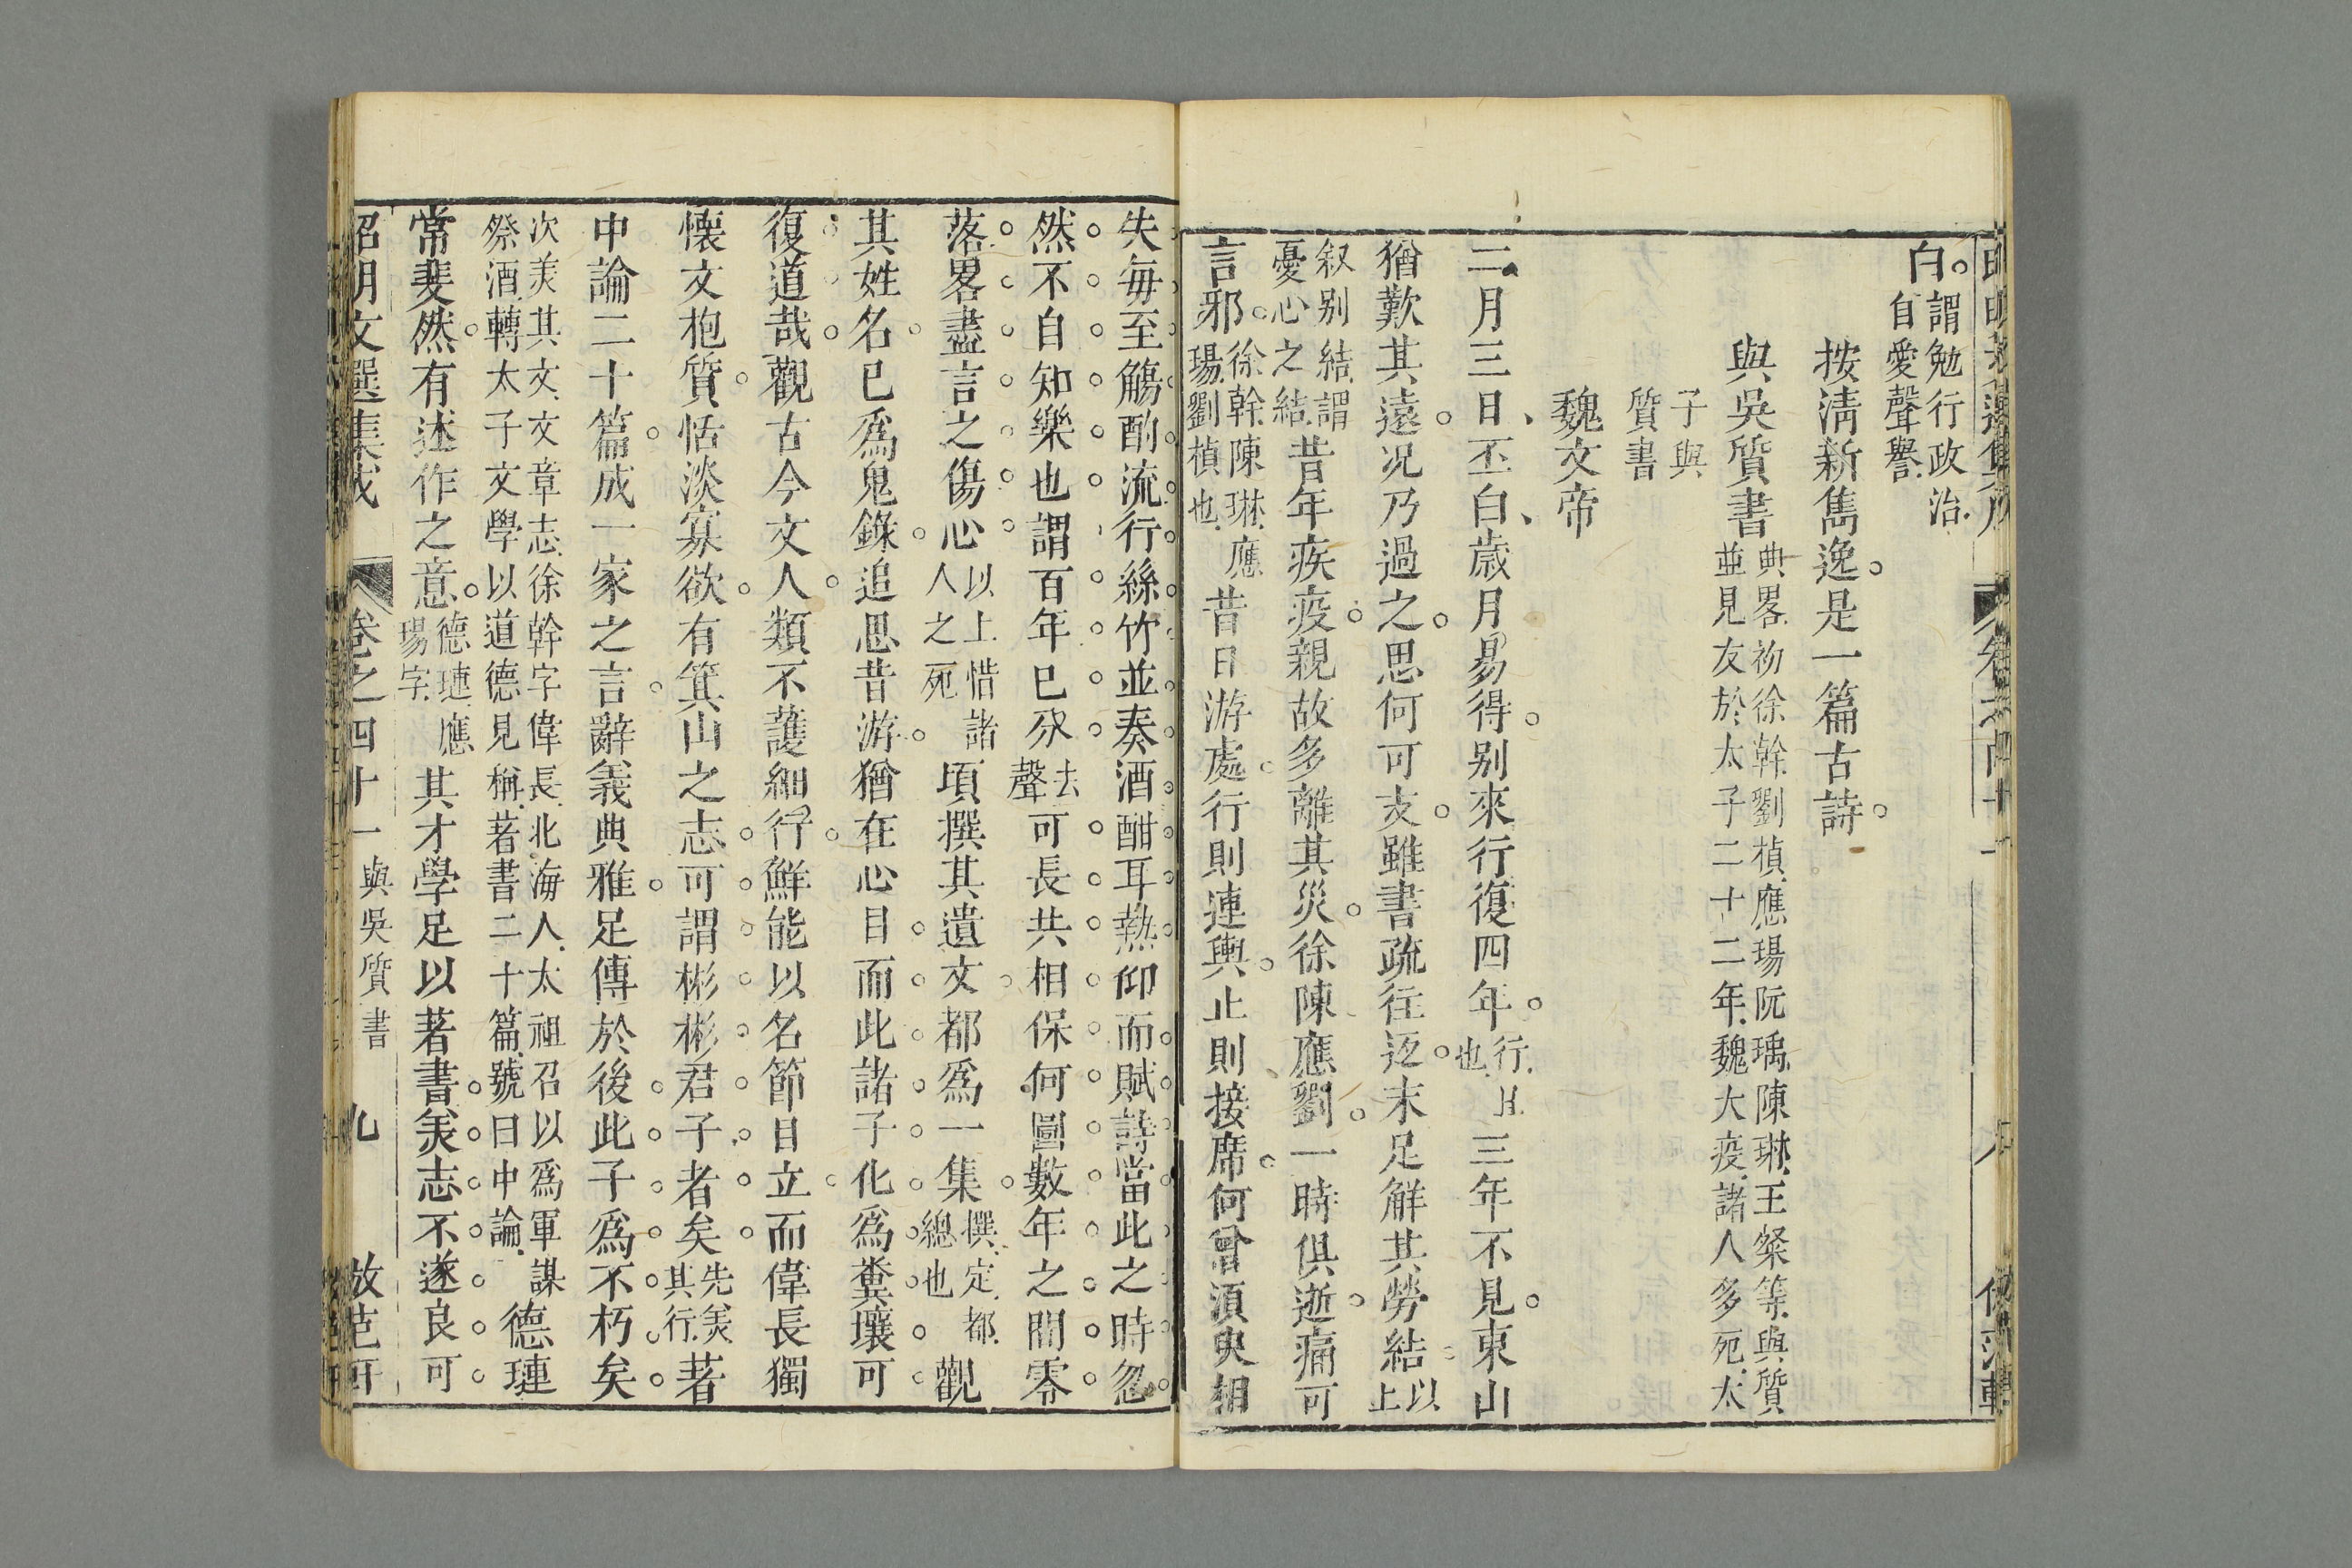 白謂勉行政治
自愛聲譽
按淸新雋逸是一篇古詩
與吳質書典畧初徐幹劉楨應瑒阮瑀陳琳王粲等與質
並見友於太子二十二年魏大疫諸人多死太
子與
質書
魏文帝
二月三日丕白歲月易得别來行復四年行且
也三年不見東山
猶歎其遠况乃過之思何可支雖書疏往返未足解其勞結以
上
叙别結謂
憂心之結昔年疾疫親故多離其災徐陳應劉一時俱逝痛可
言邪徐幹陳琳應
瑒劉楨也昔日游處行則連輿止則接席何曾須臾相
失毎至觴酌流行絲竹並奏酒酣耳熱仰而賦詩當此之時忽
然不自知樂也謂百年已分去
聲可長共相保何圖數年之間零
落畧盡言之傷心以上惜諸
人之死頃撰其遺文都爲一集撰定都
總也觀
其姓名已爲鬼錄追思昔游猶在心目而此諸子化爲糞壤可
復道哉觀古今文人類不護細行鮮能以名節自立而偉長獨
懷文抱質恬淡寡欲有箕山之志可謂彬彬君子者矣先美
其行著
中論二十篇成一家之言辭義典雅足傳於後此子爲不朽矣
次美其文文章志徐幹字偉長北海人太祖召以爲軍謀
祭酒轉太子文學以道德見稱著書二十篇號曰中論德璉
常斐然有述作之意德璉應
瑒字其才學足以著書美志不遂良可
昭明文選集成 卷之四十一 與吳質書 九